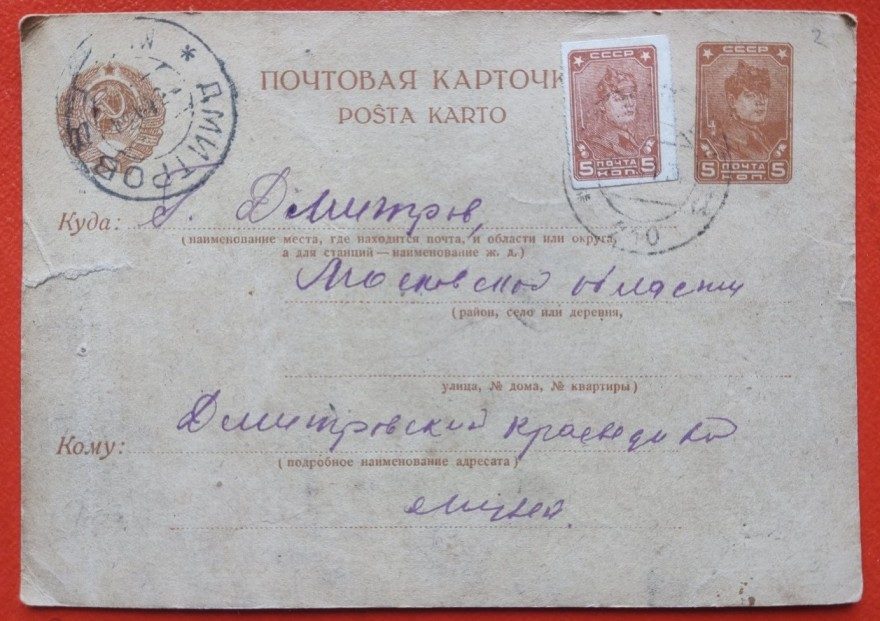 2
ПОЧТОВАЯ КАРТОЧК
POŜTA KARTO
СССР
5 ПОЧТА 5
КОП.
СССР
5 ПОЧТА 5
КОП.
ДМИТРОВ
Куда: г. Дмитров,
(наименование места, где находится почта, и области или округа,
а для станций—наименование ж. д.)
Московской области
(район, село или деревня,
улица, № дома, № квартиры)
Кому: Дмитровский краеведч
(подробное наименование адресата)
музей.